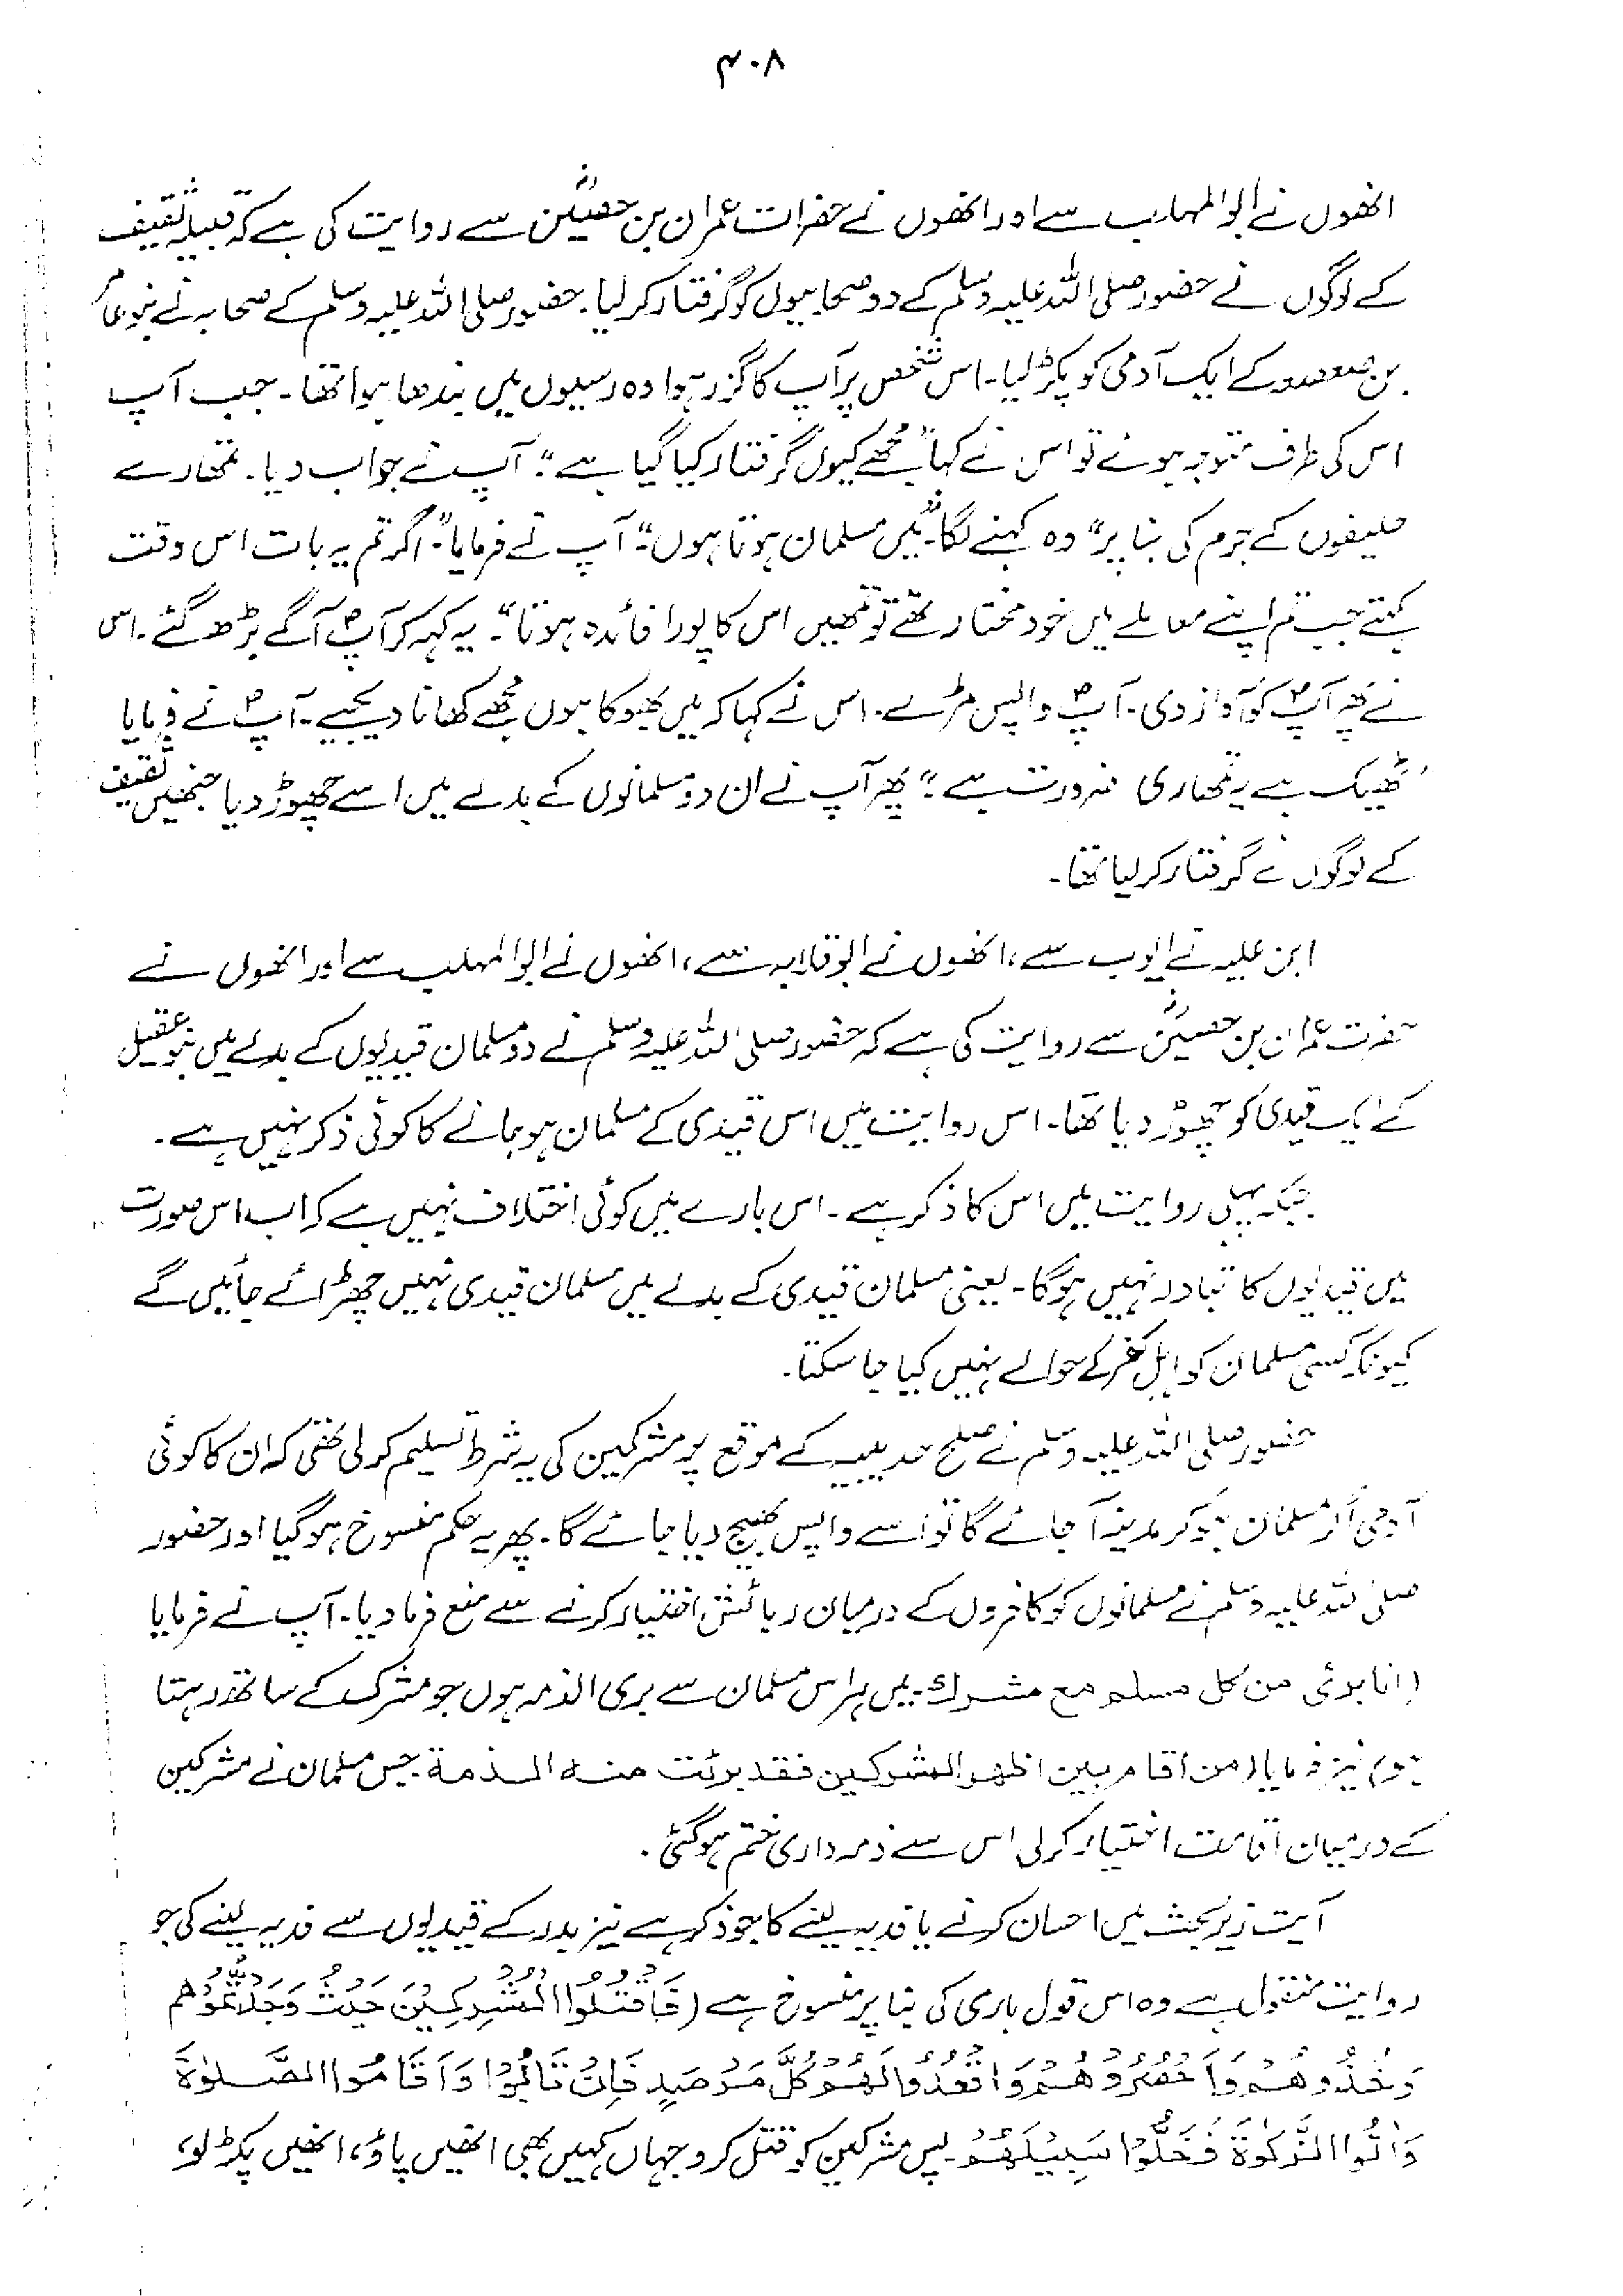 ۳۰۸
انھوں نے ابوالمہلب سے اور انھوں نے حضرات عمران بن حصینؓ سے روایت کی ہے کہ قبیلہ ثقیف
کے لوگوں نے حضور صلی اللہ علیہ وسلم کے دو صحابیوں کو گرفتار کر لیا۔ حضور صلی اللہ علیہ وسلم کے صحابہ نے بنو عامر
بن صعصعہ کے ایک آدمی کو پکڑ لیا۔ اس شخص پر آپ کا گزر ہوا وہ رسیوں میں بندھا ہوا تھا۔ جب آپ
اس کی طرف متوجہ ہوئے تو اس نے کہا "مجھے کیوں گرفتار کیا گیا ہے"؟ آپ نے جواب دیا۔ تمھارے
حلیفوں کے جرم کی بنا پر" وہ کہنے لگا۔ "میں مسلمان ہوتا ہوں"۔ آپ نے فرمایا: "اگر تم یہ بات اس وقت
کہتے جب تم اپنے معاملے میں خود مختار تھے تو تمھیں اس کا پورا فائدہ ہوتا"۔ یہ کہہ کر آپؐ آگے بڑھ گئے۔ اس
نے پھر آپؐ کو آواز دی۔ آپؐ واپس مڑے۔ اس نے کہا کہ میں بھوکا ہوں مجھے کھانا دیجیے۔ آپؐ نے فرمایا
"ٹھیک ہے یہ تمھاری ضرورت ہے"؟ پھر آپ نے ان دو مسلمانوں کے بدلے میں اسے چھوڑ دیا جنھیں ثقیف
کے لوگوں نے گرفتار کر لیا تھا۔
ابن علیہ نے ایوب سے، انھوں نے ابوقلابہ سے، انھوں نے ابوالمہلب سے اور انھوں نے
حضرت عمران بن حصینؓ سے روایت کی ہے کہ حضور صلی اللہ علیہ وسلم نے دو مسلمان قیدیوں کے بدلے میں بنو عقیل
کے ایک قیدی کو چھوڑ دیا تھا۔ اس روایت میں اس قیدی کے مسلمان ہو جانے کا کوئی ذکر نہیں ہے۔
جبکہ پہلی روایت میں اس کا ذکر ہے۔ اس بارے میں کوئی اختلاف نہیں ہے کہ اب اس صورت
میں قیدیوں کا تبادلہ نہیں ہوگا۔ یعنی مسلمان قیدی کے بدلے میں مسلمان قیدی نہیں چھڑائے جائیں گے
کیونکہ کسی مسلمان کو اہل کفر کے حوالے نہیں کیا جا سکتا۔
حضور صلی اللہ علیہ وسلم نے صلح حدیبیہ کے موقع پر مشرکین کی یہ شرط تسلیم کر لی تھی کہ ان کا کوئی
آدمی اگر مسلمان ہو کر مدینہ آ جائے گا تو اسے واپس بھیج دیا جائے گا۔ پھر یہ حکم منسوخ ہو گیا اور حضور
صلی اللہ علیہ وسلم نے مسلمانوں کو کافروں کے درمیان رہائش اختیار کرنے سے منع فرما دیا۔ آپ نے فرمایا
(انا بریٔ من کل مسلم مع مشرک۔ میں ہر اس مسلمان سے بری الذمہ ہوں جو مشرک کے ساتھ رہتا
ہو) نیز فرمایا (من اقام بین اظھر المشرکین فقد برئت منہ الذمۃ۔ جس مسلمان نے مشرکین
کے درمیان اقامت اختیار کر لی اس سے ذمہ داری ختم ہو گئی۔
آیت زیر بحث میں احسان کرنے یا فدیہ لینے کا جو ذکر ہے نیز بدر کے قیدیوں سے فدیہ لینے کی جو
روایت منقول ہے وہ اس قول باری کی بنا پر منسوخ ہے (فَاقْتُلُوا الْمُشْرِكِيْنَ حَيْثُ وَجَدْتُّمُوْهُمْ
وَخُذُوْهُمْ وَاحْصُرُوْهُمْ وَاقْعُدُوْا لَهُمْ كُلَّ مَرْصَدٍ فَاِنْ تَابُوْا وَاَقَامُوا الصَّلٰوةَ
وَاٰتُوا الزَّكٰوةَ فَخَلُّوْا سَبِيْلَهُمْ۔ پس مشرکین کو قتل کرو جہاں کہیں بھی انھیں پاؤ، انھیں پکڑ لو،